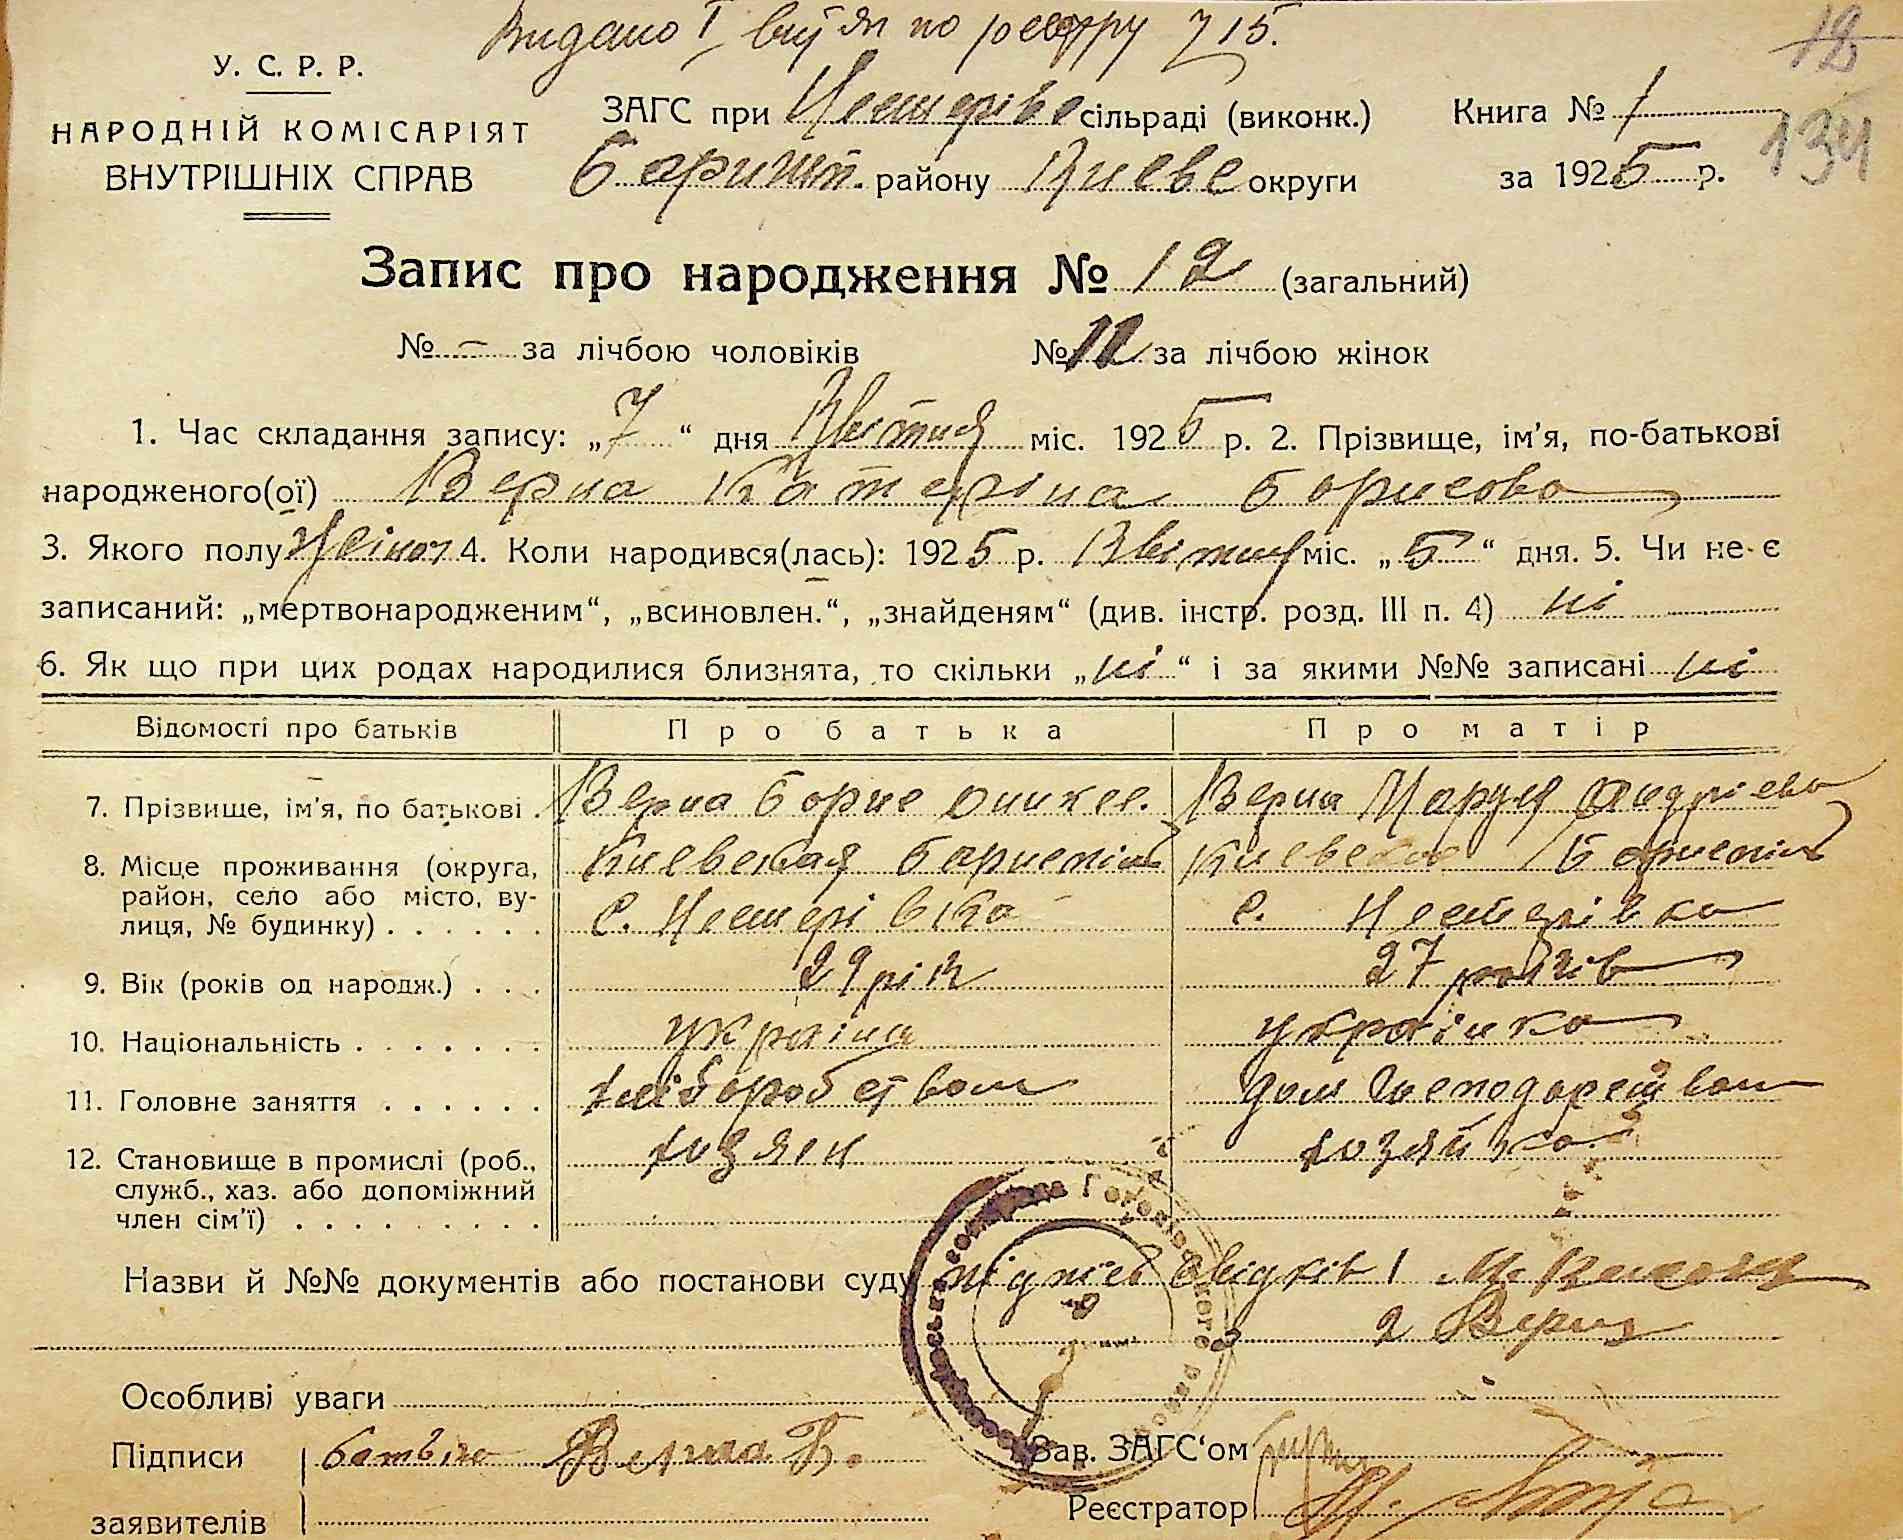 Видано по реєстру 715.
18
134
У. С. Р. Р.
НАРОДНІЙ КОМІСАРІЯТ
ВНУТРІШНІХ СПРАВ
ЗАГС при сільраді (виконк.)
району Києве округи
Книга № 1
за 1925 р.
Запис про народження № 12 (загальний)
№ – за лічбою чоловіків № за лічбою жінок
1. Час складання запису: „7“ дня Квітня міс. 1925 р. 2. Прізвище, ім’я, по-батькові
народженого(ої) Верна Катеріна Борисова
3. Якого полу Жіноч 4. Коли народився(лась): 1925 р. Квітня міс. „5“ дня. 5. Чи не є
записаний: „мертвонародженим“, „всиновлен.“, „знайденям“ (див. інстр. розд. III п. 4) ні
6. Як що при цих родах народилися близнята, то скільки „ні“ і за якими №№ записані ні
Відомості про батьків Про батька Про матір
7. Прізвище, ім’я, по батькові . Верна Борис Верна Маруся Андрієва
8. Місце проживання (округа, район, село або місто, ву-
лиця, № будинку) . . . . . .
Киевская Бориспіль
с. Нестерівка
с. Нестерівка
9. Вік (років од народж.) . . . 29 рік 27 років
10. Національність . . . . . . . україна українка
11. Головне заняття . . . . . . хліборобством дом господарством
12. Становище в промислі (роб., служб., хаз. або допоміжний
член сім’ї) . . . . . . . . .
хозяін хозяйка
Назви й №№ документів або постанови суду підпис свідків 1
2 Верна
Особливі уваги
Підписи
заявителів
батько Верна Б.
Зав. ЗАГС‘ом
Реєстратор